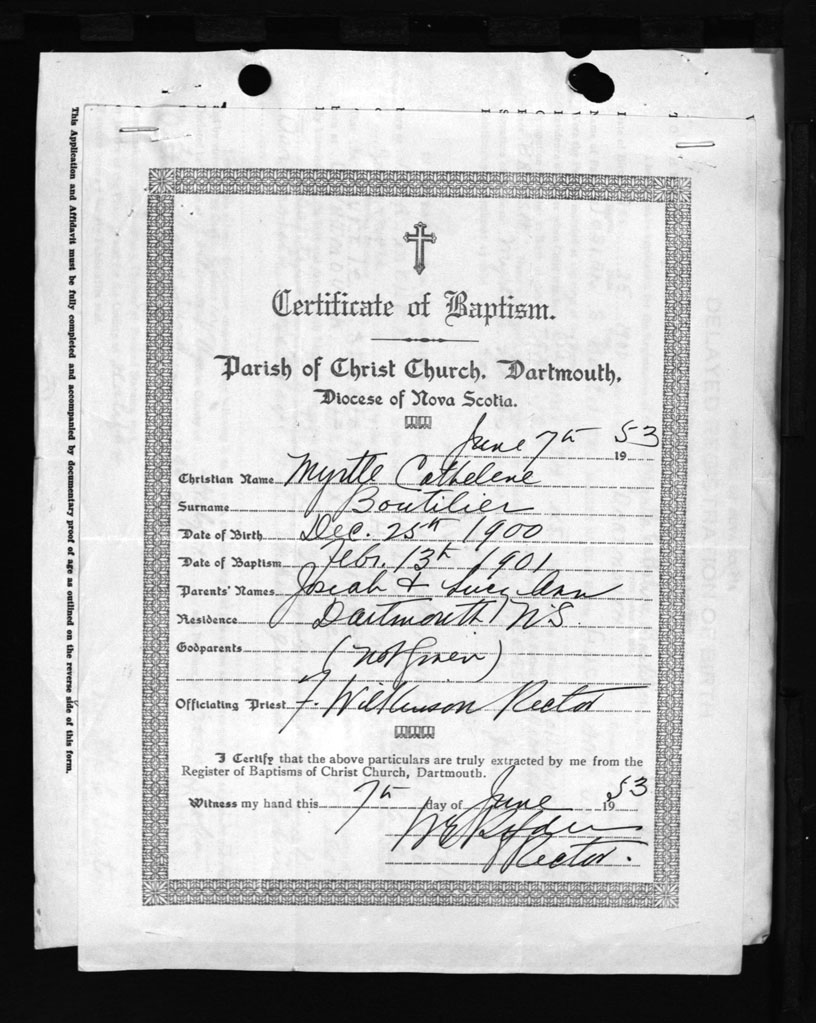 This Application and Affidavit must be fully completed and accompanied by documentary proof of age as outlined on the reverse side of this form.
Certificate of Baptism.
Parish of Christ Church, Dartmouth,
Diocese of Nova Scotia.
June 7th 1953
Christian Name Myrtle Cathelene
Surname Boutilier
Date of Birth Dec. 25th 1900
Date of Baptism Febr. 13th 1901
Parents' Names Josiah & Lucy Ann
Residence Dartmouth N.S.
Godparents (not given)
Officiating Priest F. Wilkinson Rector
I Certify that the above particulars are truly extracted by me from the
Register of Baptisms of Christ Church, Dartmouth.
Witness my hand this 7th day of June 1953
Rector.